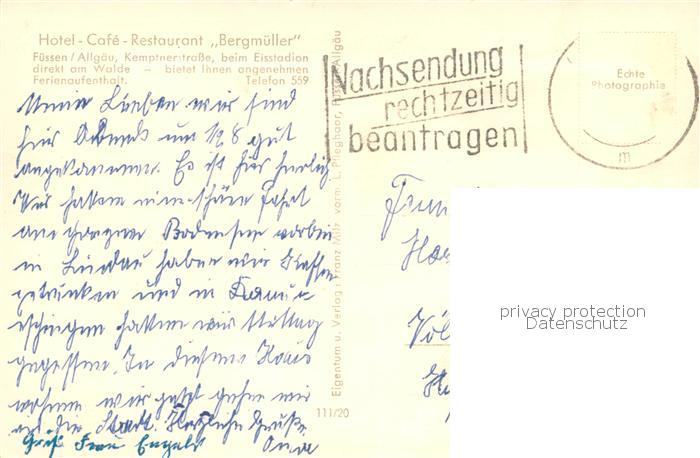 Hotel - Café - Restaurant „Bergmüller"
Füssen / Allgäu, Kemptnerstraße, beim Eisstadion
direkt am Walde — bietet Ihnen angenehmen
Ferienaufenthalt. Telefon 559
Meine Lieben wir sind
hier Abends um 1/2 8 gut
angekommen. Es ist hier herrlich
Wir hatten eine schöne Fahrt
am ganzen Bodensee vorbei
in Lindau haben wir Kaffee
getrunken und in Donau-
eschingen hatten wir Mittag
gegessen. In diesem Haus
wohnen wir jetzt gehen wir
in die Stadt. Herzliche Grüße
Oma
Gruß Frau Engels
Eigentum u. Verlag: Franz Milz vorm. L. Pfleghaar, Füssen, Allgäu
111/20
Nachsendung
rechtzeitig
beantragen
Echte
Photographie
m
Völ
privacy protection
Datenschutz